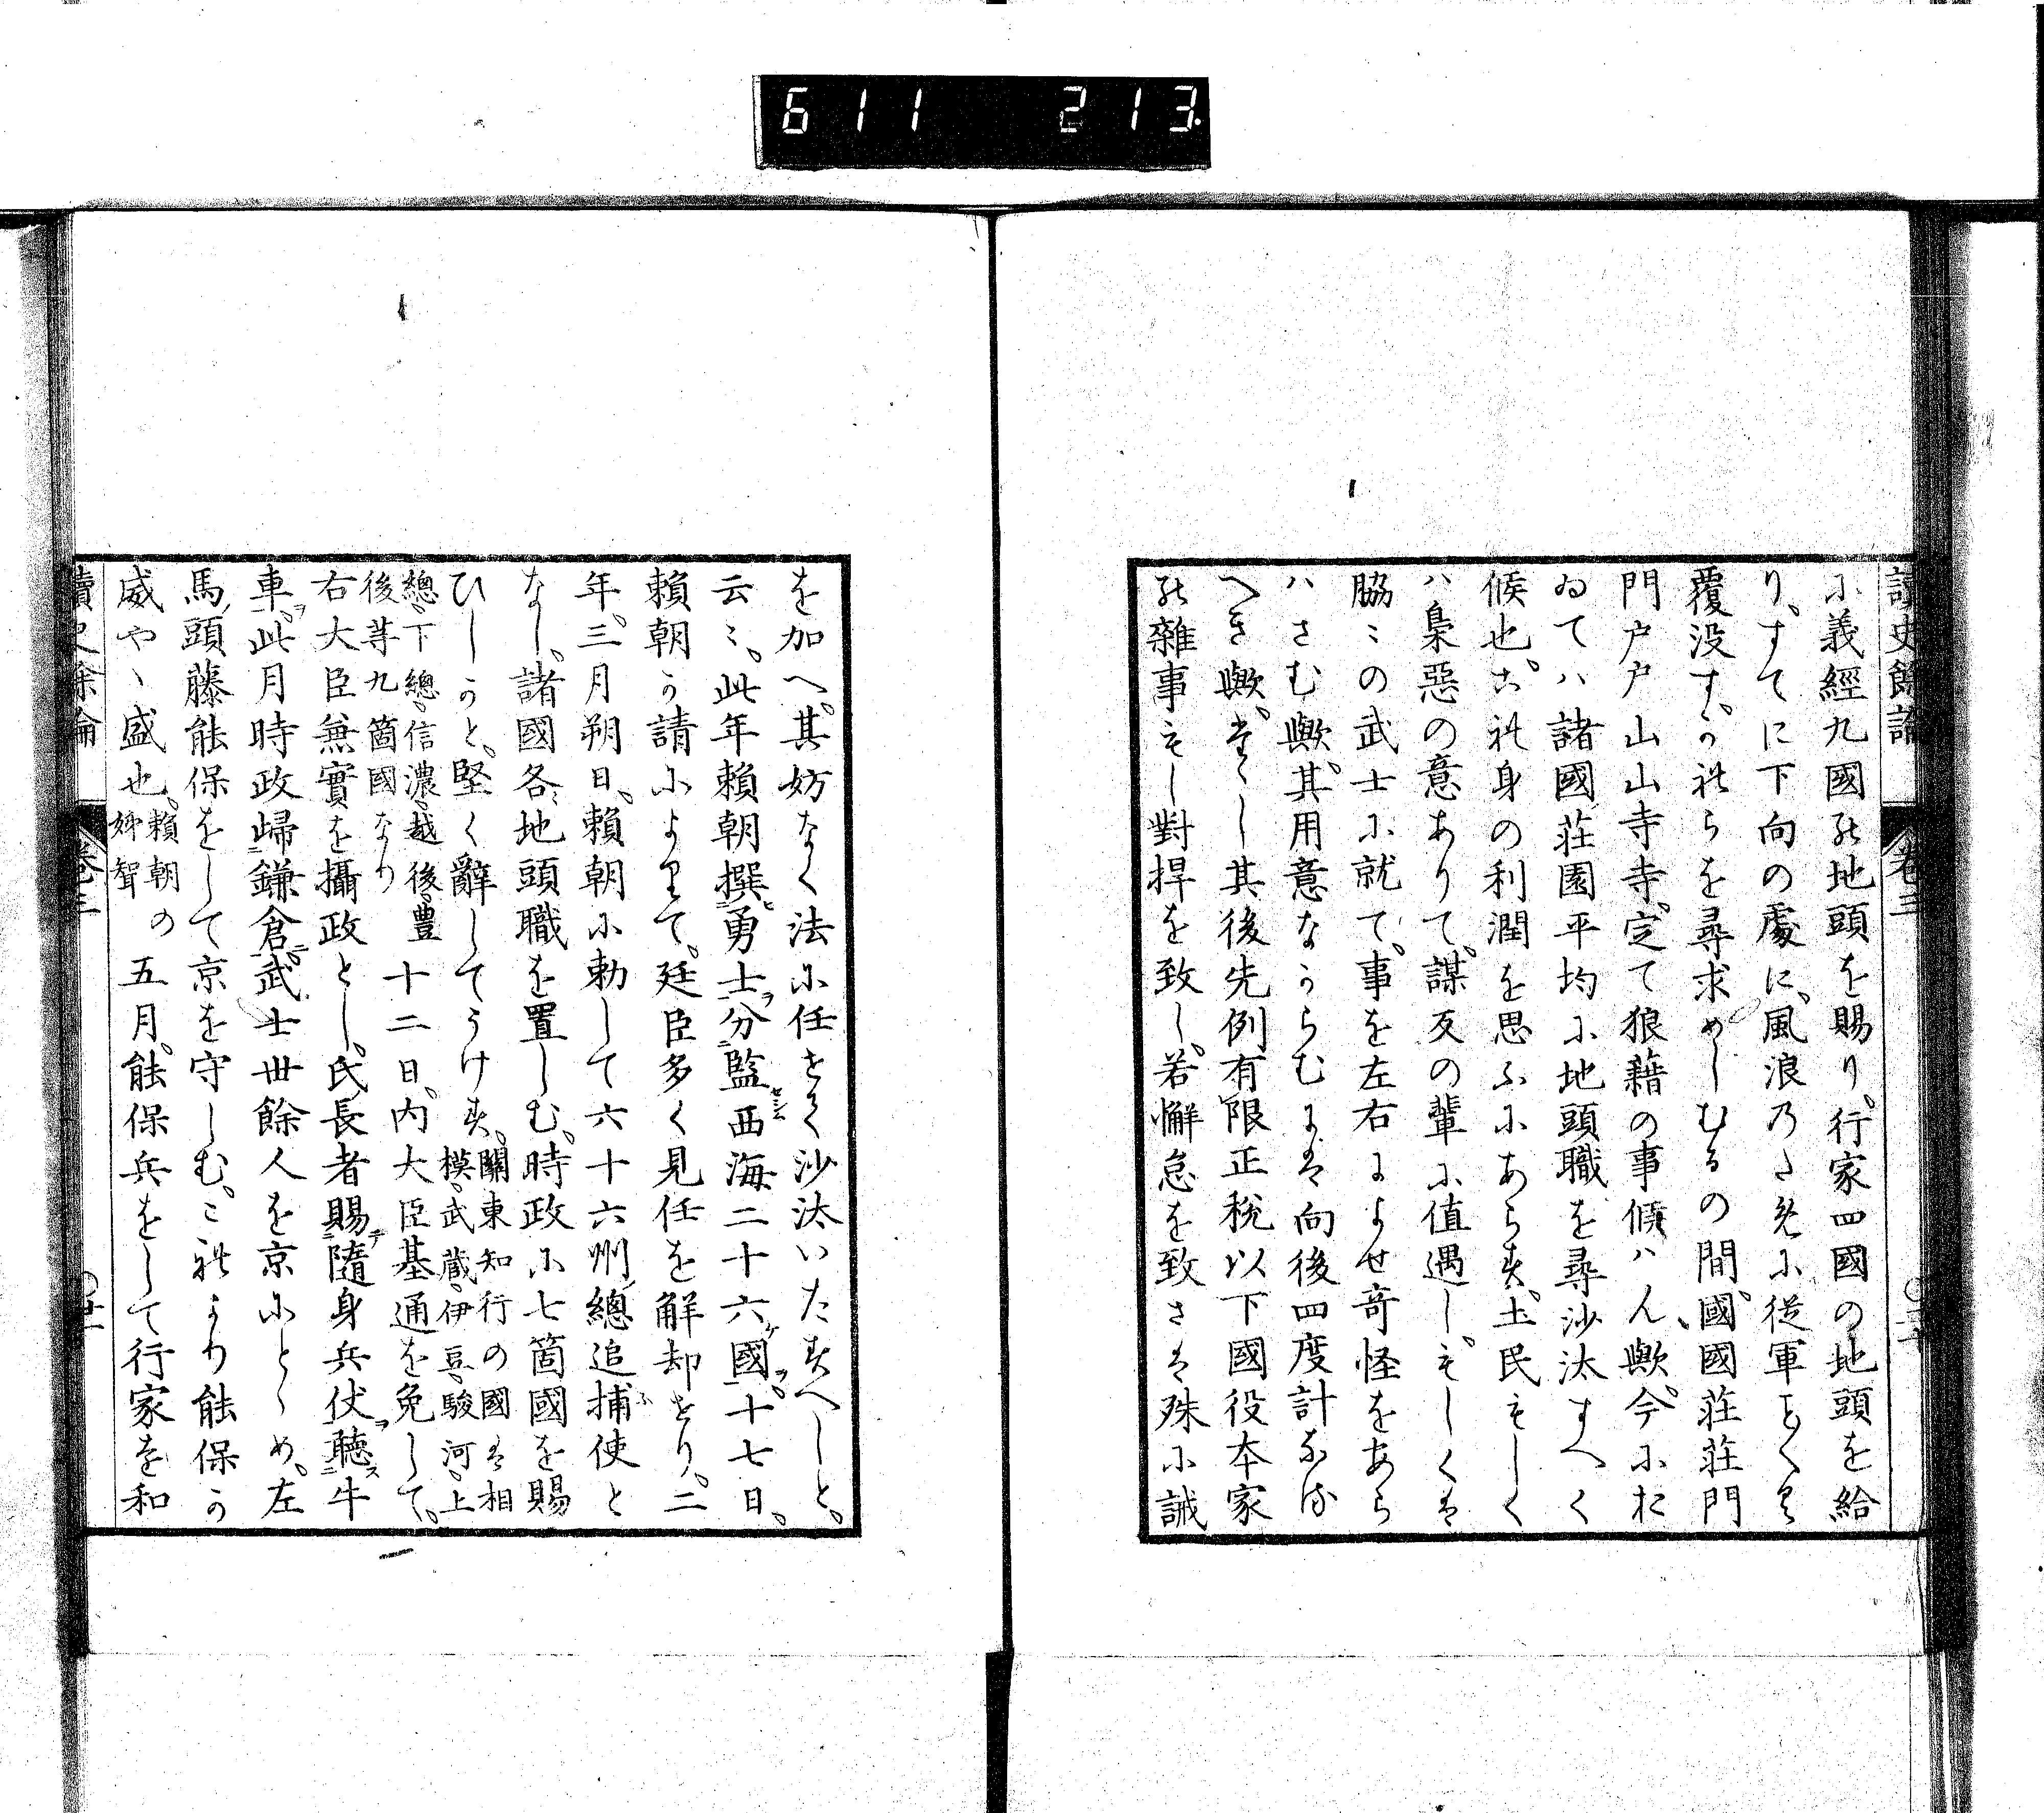 611 213
讀史餘論 卷三 〇二十
に義經九國の地頭を賜り。行家四國の地頭を給
り。すてに下向の處に。風浪のために從軍ことくく
覆没す。かれらを尋求めしむるの間。國國莊莊門
門戸戸山山寺寺。定て狼藉の事候ハん歟。今にお
ゐてハ諸國莊園平均に地頭職を尋沙汰すへく
候也。これ身の利潤を思ふにあらす。土民もしく
ハ梟惡の意ありて。謀反の輩に値遇し。もしくは
脇〻の武士に就て。事を左右によせ奇怪をあら
ハさむ歟。其用意なからむには向後四度計なる
へき歟。たゝし其後先例有限正税以下國役本家
の雜事もし對捍を致し。若懈怠を致さは殊に誡
を加へ。其妨なく法に任せて沙汰いたすへしと。
云〻。此年賴朝撰ヒ二勇士ヲ一分監セシム西海二十六ケ國ヲ一。十七日。
賴朝か請によりて。廷臣多く見任を解却せり。二
年。三月朔日。賴朝に勅して六十六州總追捕使と
なし。諸國各〻地頭職を置しむ。時政に七箇國を賜
ひしかと。堅く辭してうけす。關東知行の國は相
模。武藏。伊豆。駿河。上
總。下總。信濃。越後。豊
後等九箇國なり 十二日。内大臣基通を免して。
右大臣兼實を攝政とし。氏長者賜二隨身兵仗一聽ス二牛
車ヲ一。此月時政歸二鎌倉ニ一。武士丗餘人を京にとゝめ。左
馬頭藤能保をして京を守しむ。これより能保か
威やゝ盛也。賴朝の
姉聟 五月。能保兵をして行家を和
讀史餘論 卷三 〇廿一